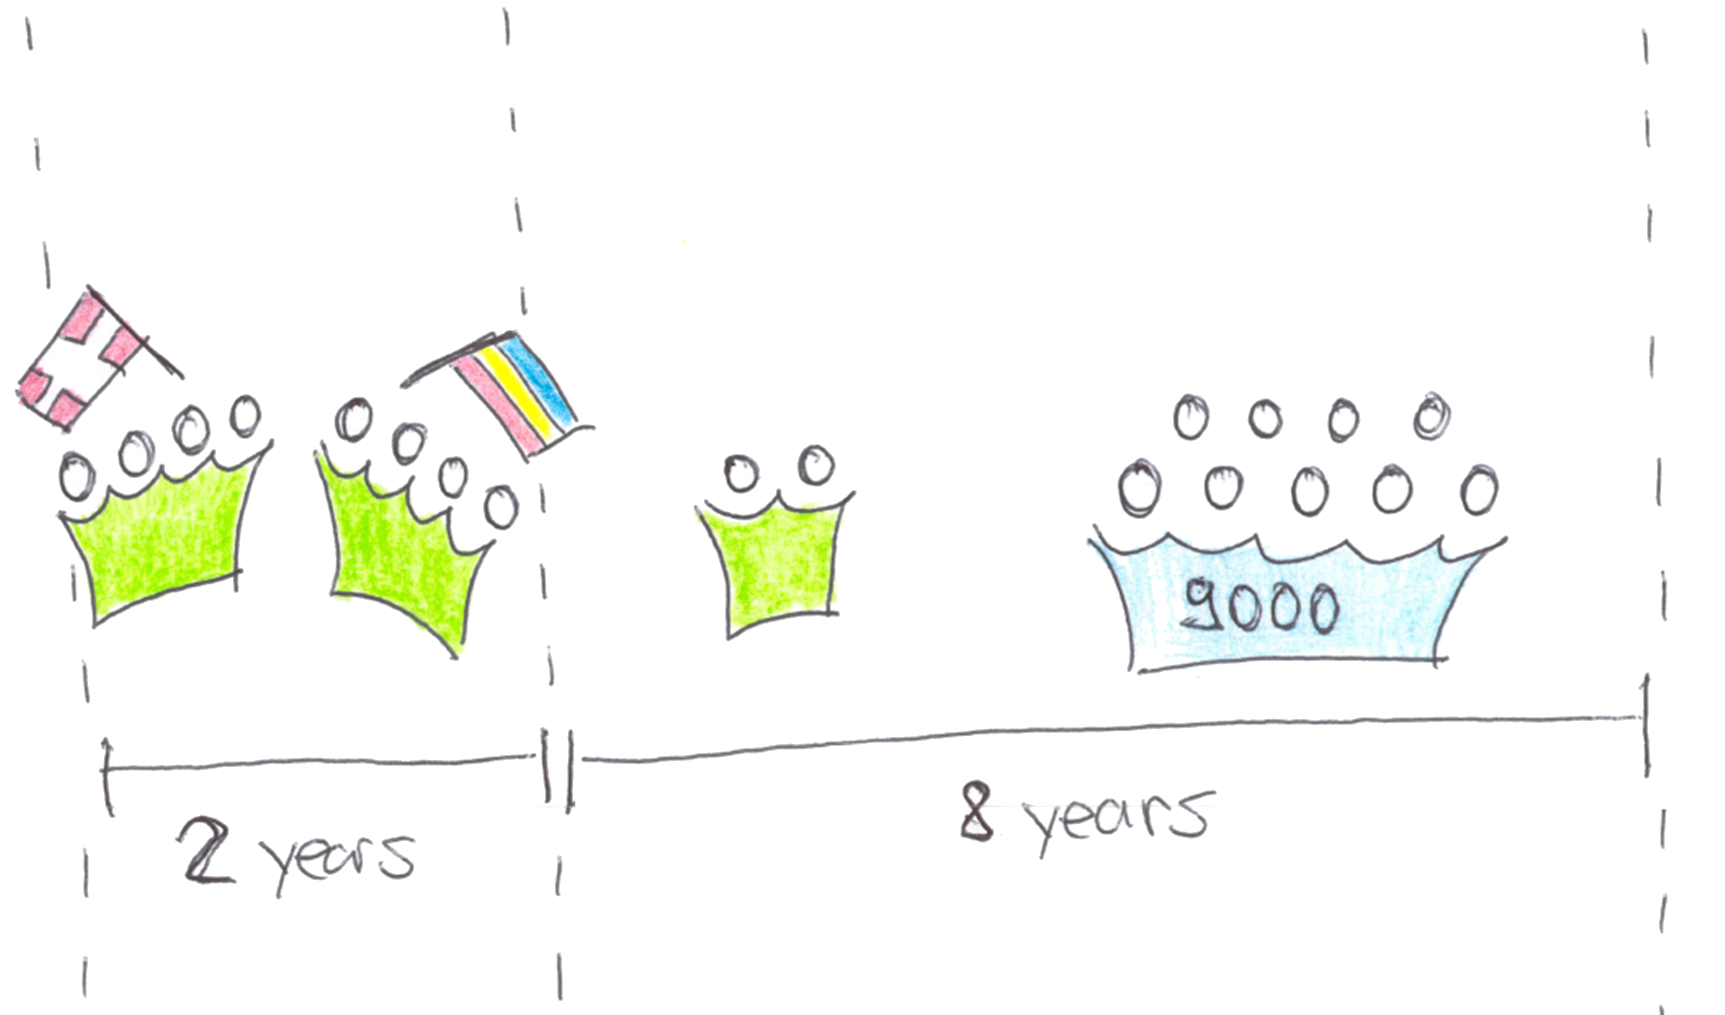 9000
2 years
8 years